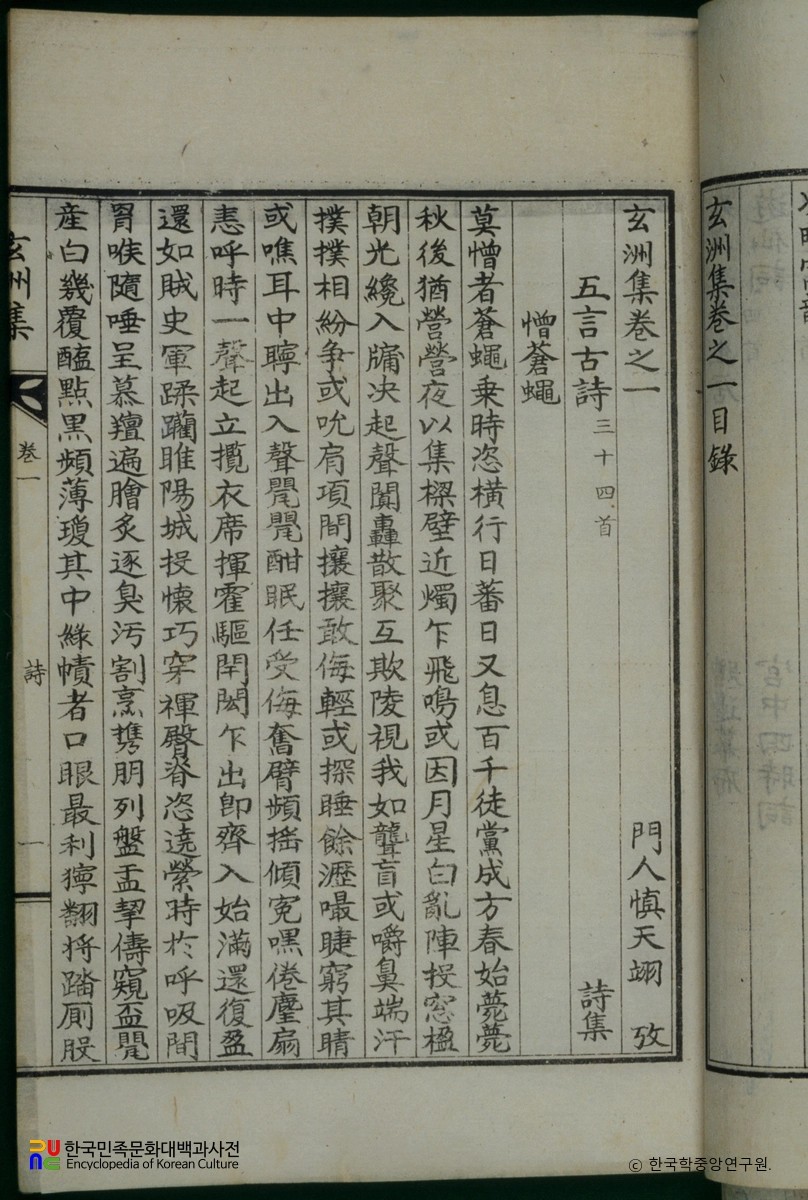 玄洲集卷之一目錄
玄洲集卷之一
門人愼天翊 攷
五言古詩 三十四首
詩集
憎蒼蠅
莫憎者蒼蠅乗時恣橫行日蕃日又息百千徒黨成方春始薨薨
秋後猶營營夜以集樑壁近燭乍飛鳴或因月星白亂陣投窓楹
朝光纔入牖决起聲闐轟散聚互欺陵視我如聾盲或嚼鼻端汗
撲撲相紛争或吮肩項間攘攘敢侮輕或探睡餘瀝嘬睫窮其睛
或噍耳中聹出入聲甖甖酣眠任受侮奮臂頻搖傾寃嘿倦麈扇
恚呼時一聲起立攬衣席揮霍驅閈閎乍出卽齊入始滿還復盈
還如賊史軍蹂躪睢陽城投懷巧穿褌臀脊恣遶縈時於呼吸間
胃喉隨唾呈慕羶遍膾炙逐臭汚割烹携朋列盤盂挈儔窺盃甖
産白幾覆醢點黒頻薄瓊其中綠幘者口眼最利獰翻將踏厠股
玄洲集
卷一
詩
一
한국민족문화대백과사전
Encyclopedia of Korean Culture
ⓒ 한국학중앙연구원.